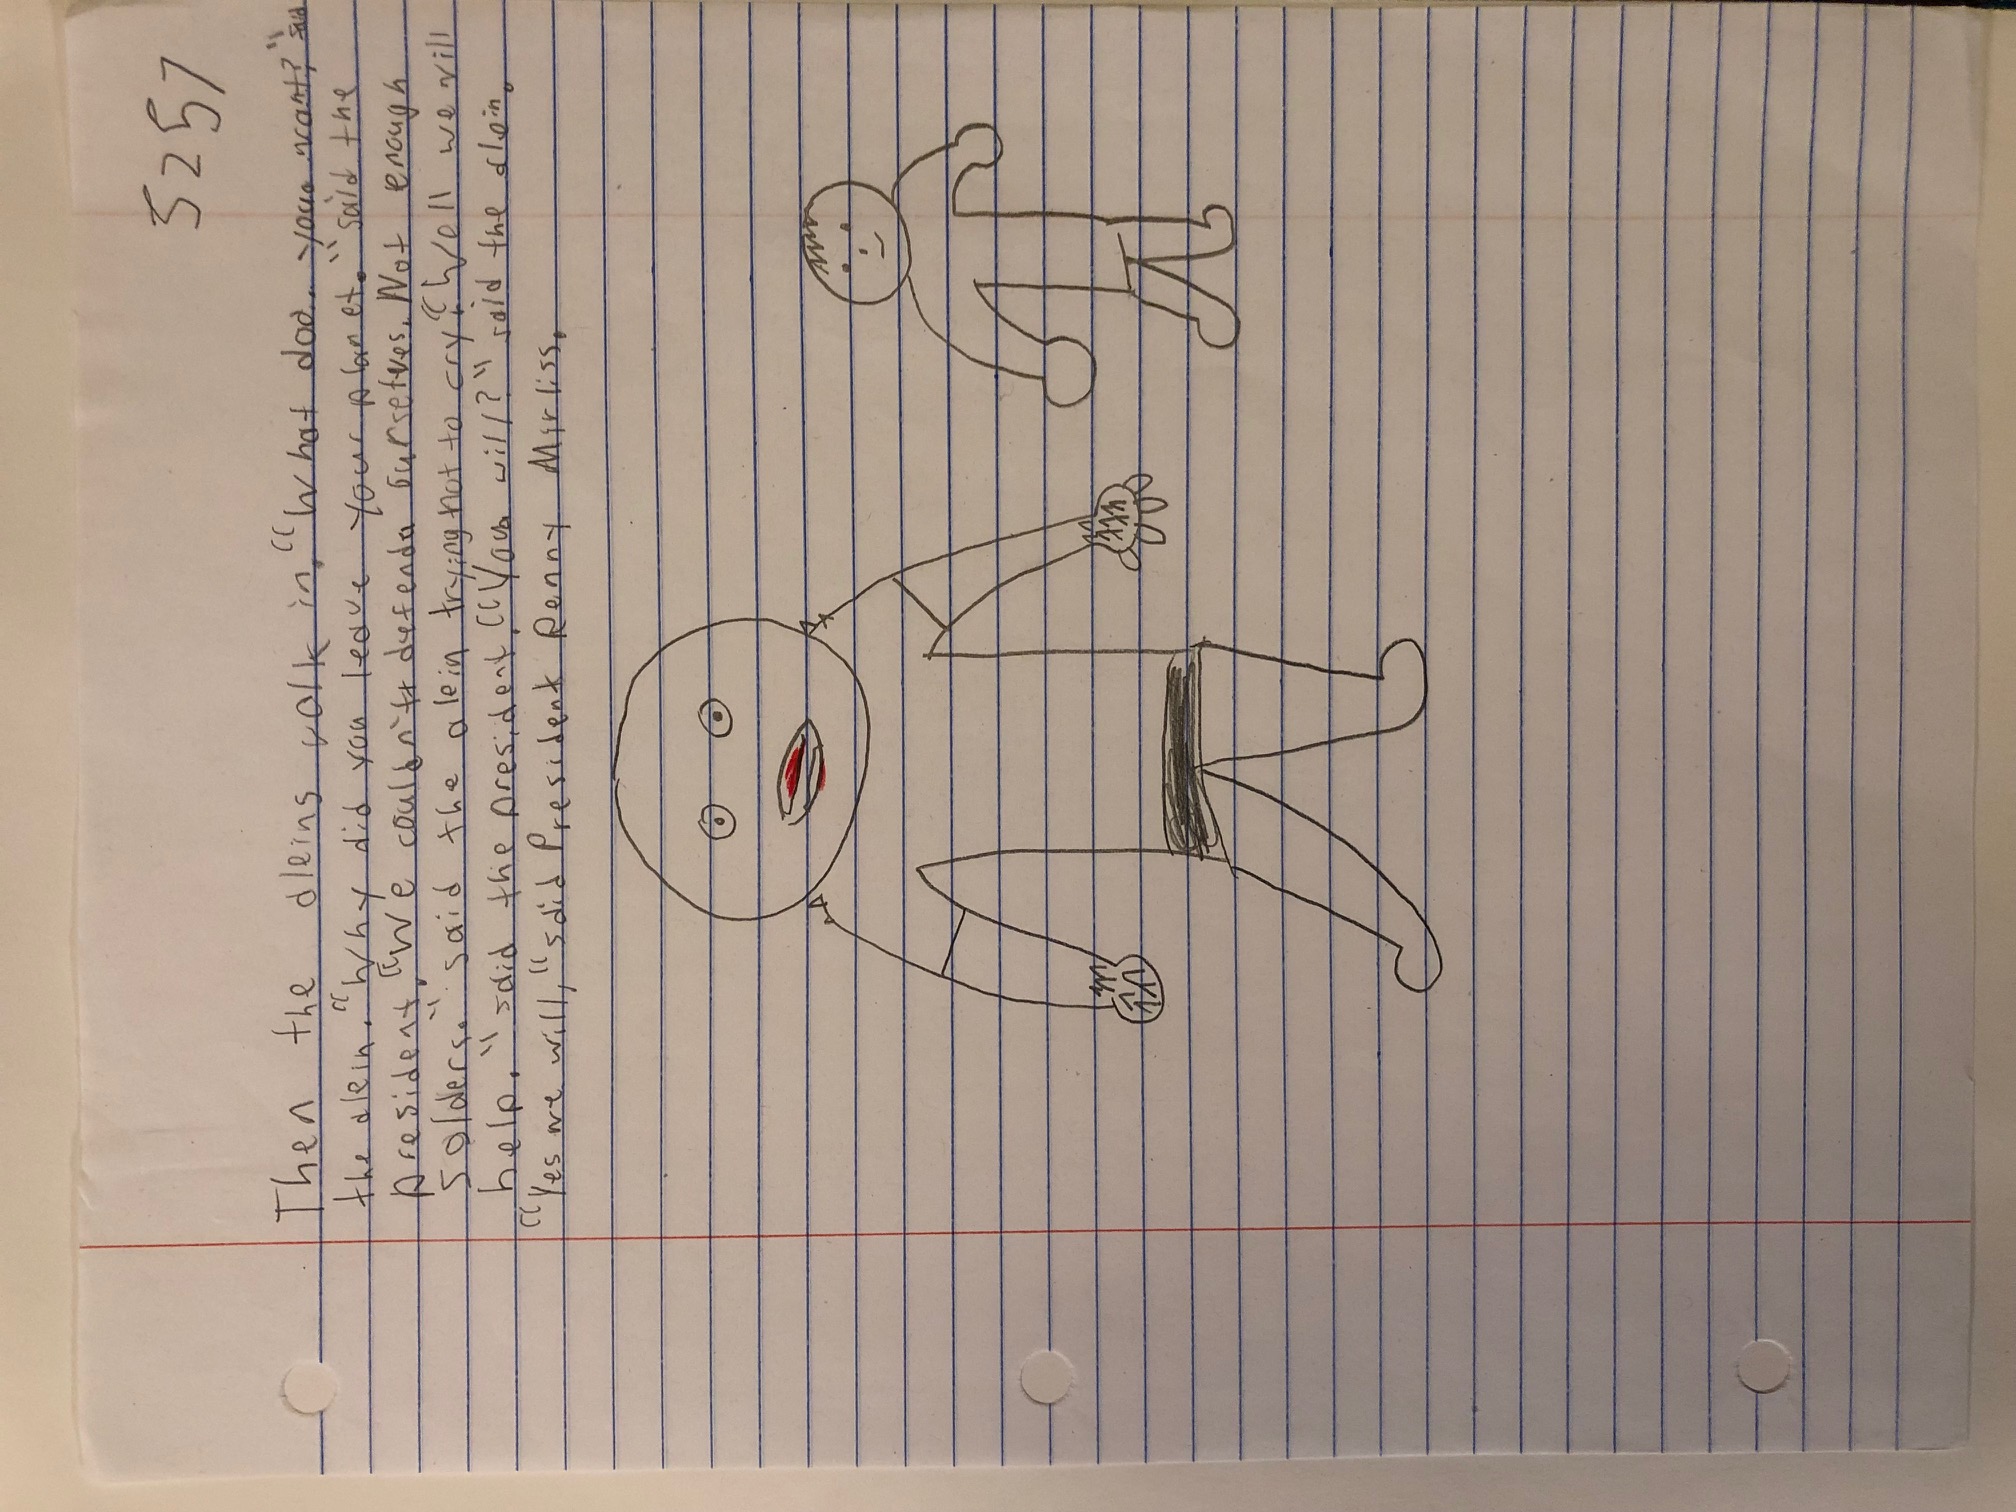 5257
Then the aleins walk in. "What doo.. you want?" said
the alein. "Why did you leave your planet." said the
president. "We couldn't defend ourselves. Not enough
solders." said the alein trying not to cry. "Well we will
help." said the president. "You will?" said the alein.
"Yes we will," said President Renny Mirliss.